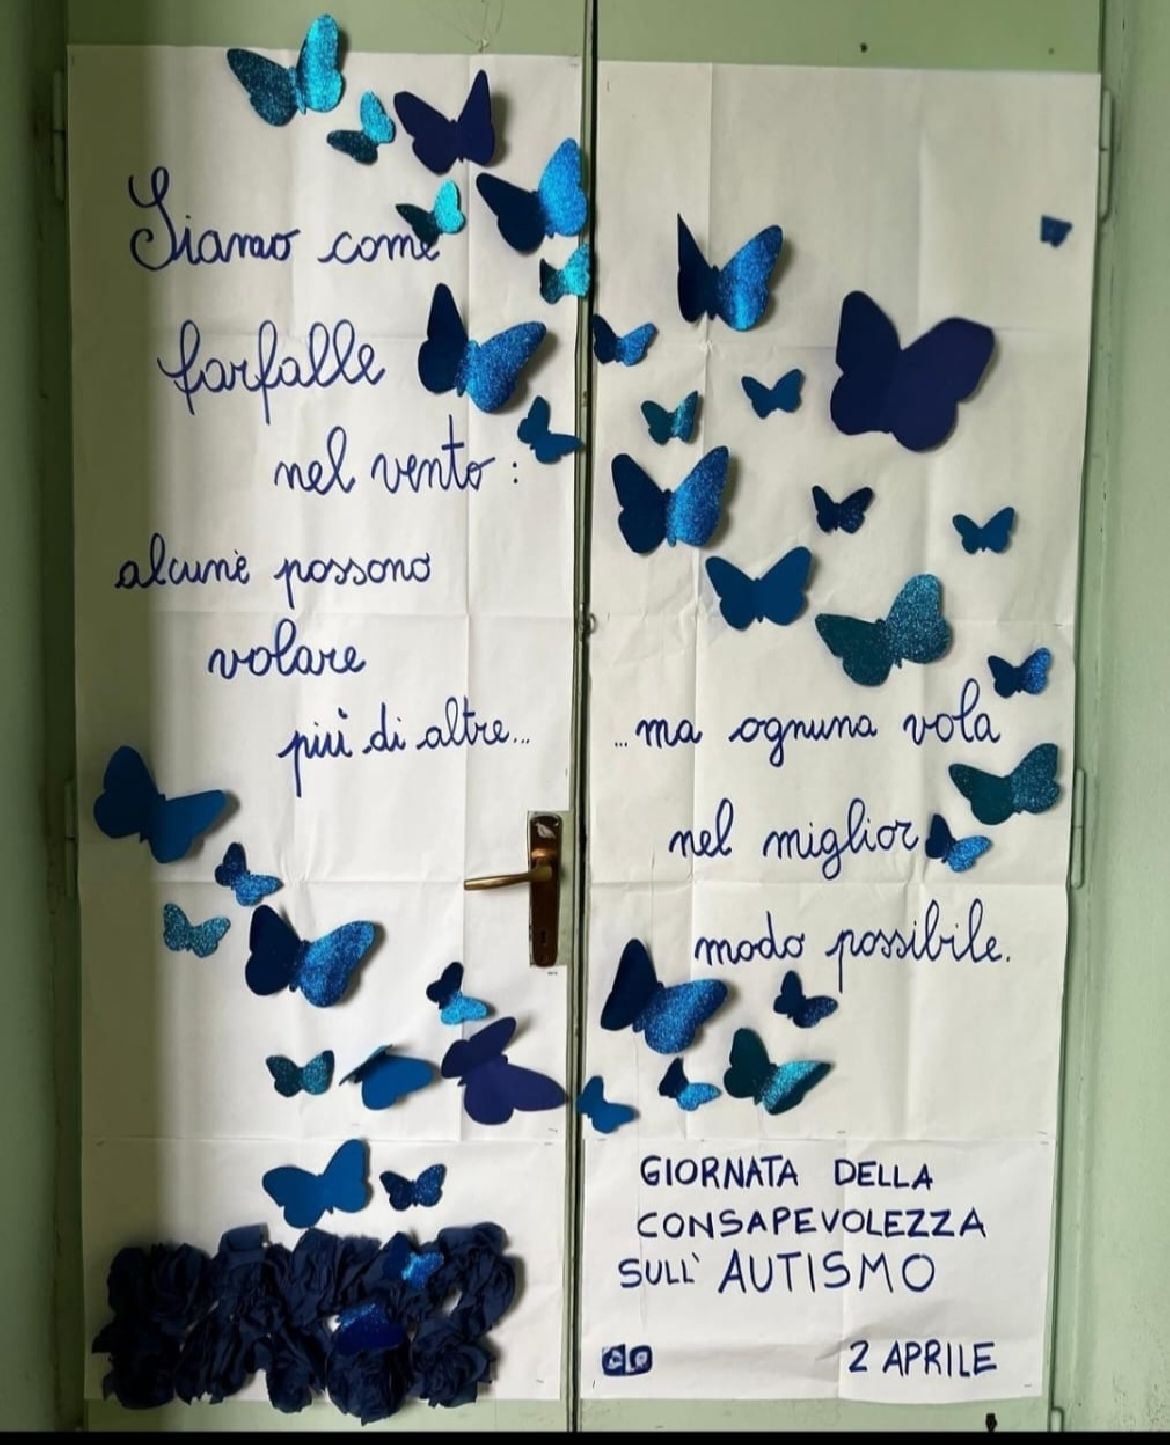 Siamo come
farfalle
nel vento:
alcune possono
volare
più di altre...
...ma ognuna vola
nel miglior
modo possibile.
GIORNATA DELLA
CONSAPEVOLEZZA
SULL' AUTISMO
2 APRILE